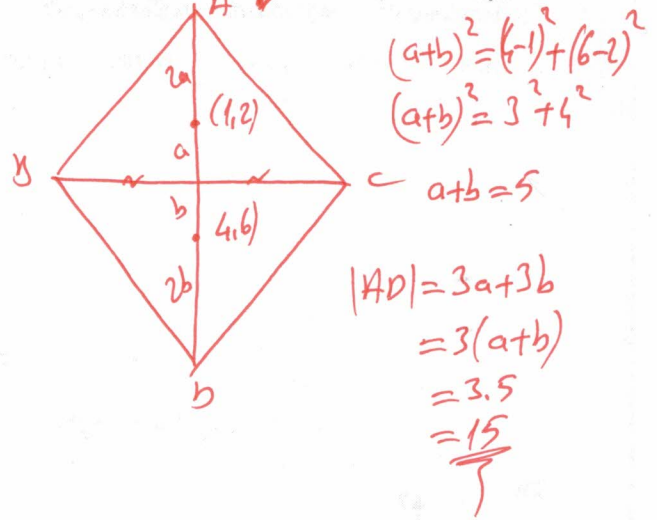 A
2a
(1,2)
a
B
C
b
4,6)
2b
D
(a+b)²=(4-1)²+(6-2)²
(a+b)²=3²+4²
a+b=5
|AD|=3a+3b
=3(a+b)
=3.5
=15